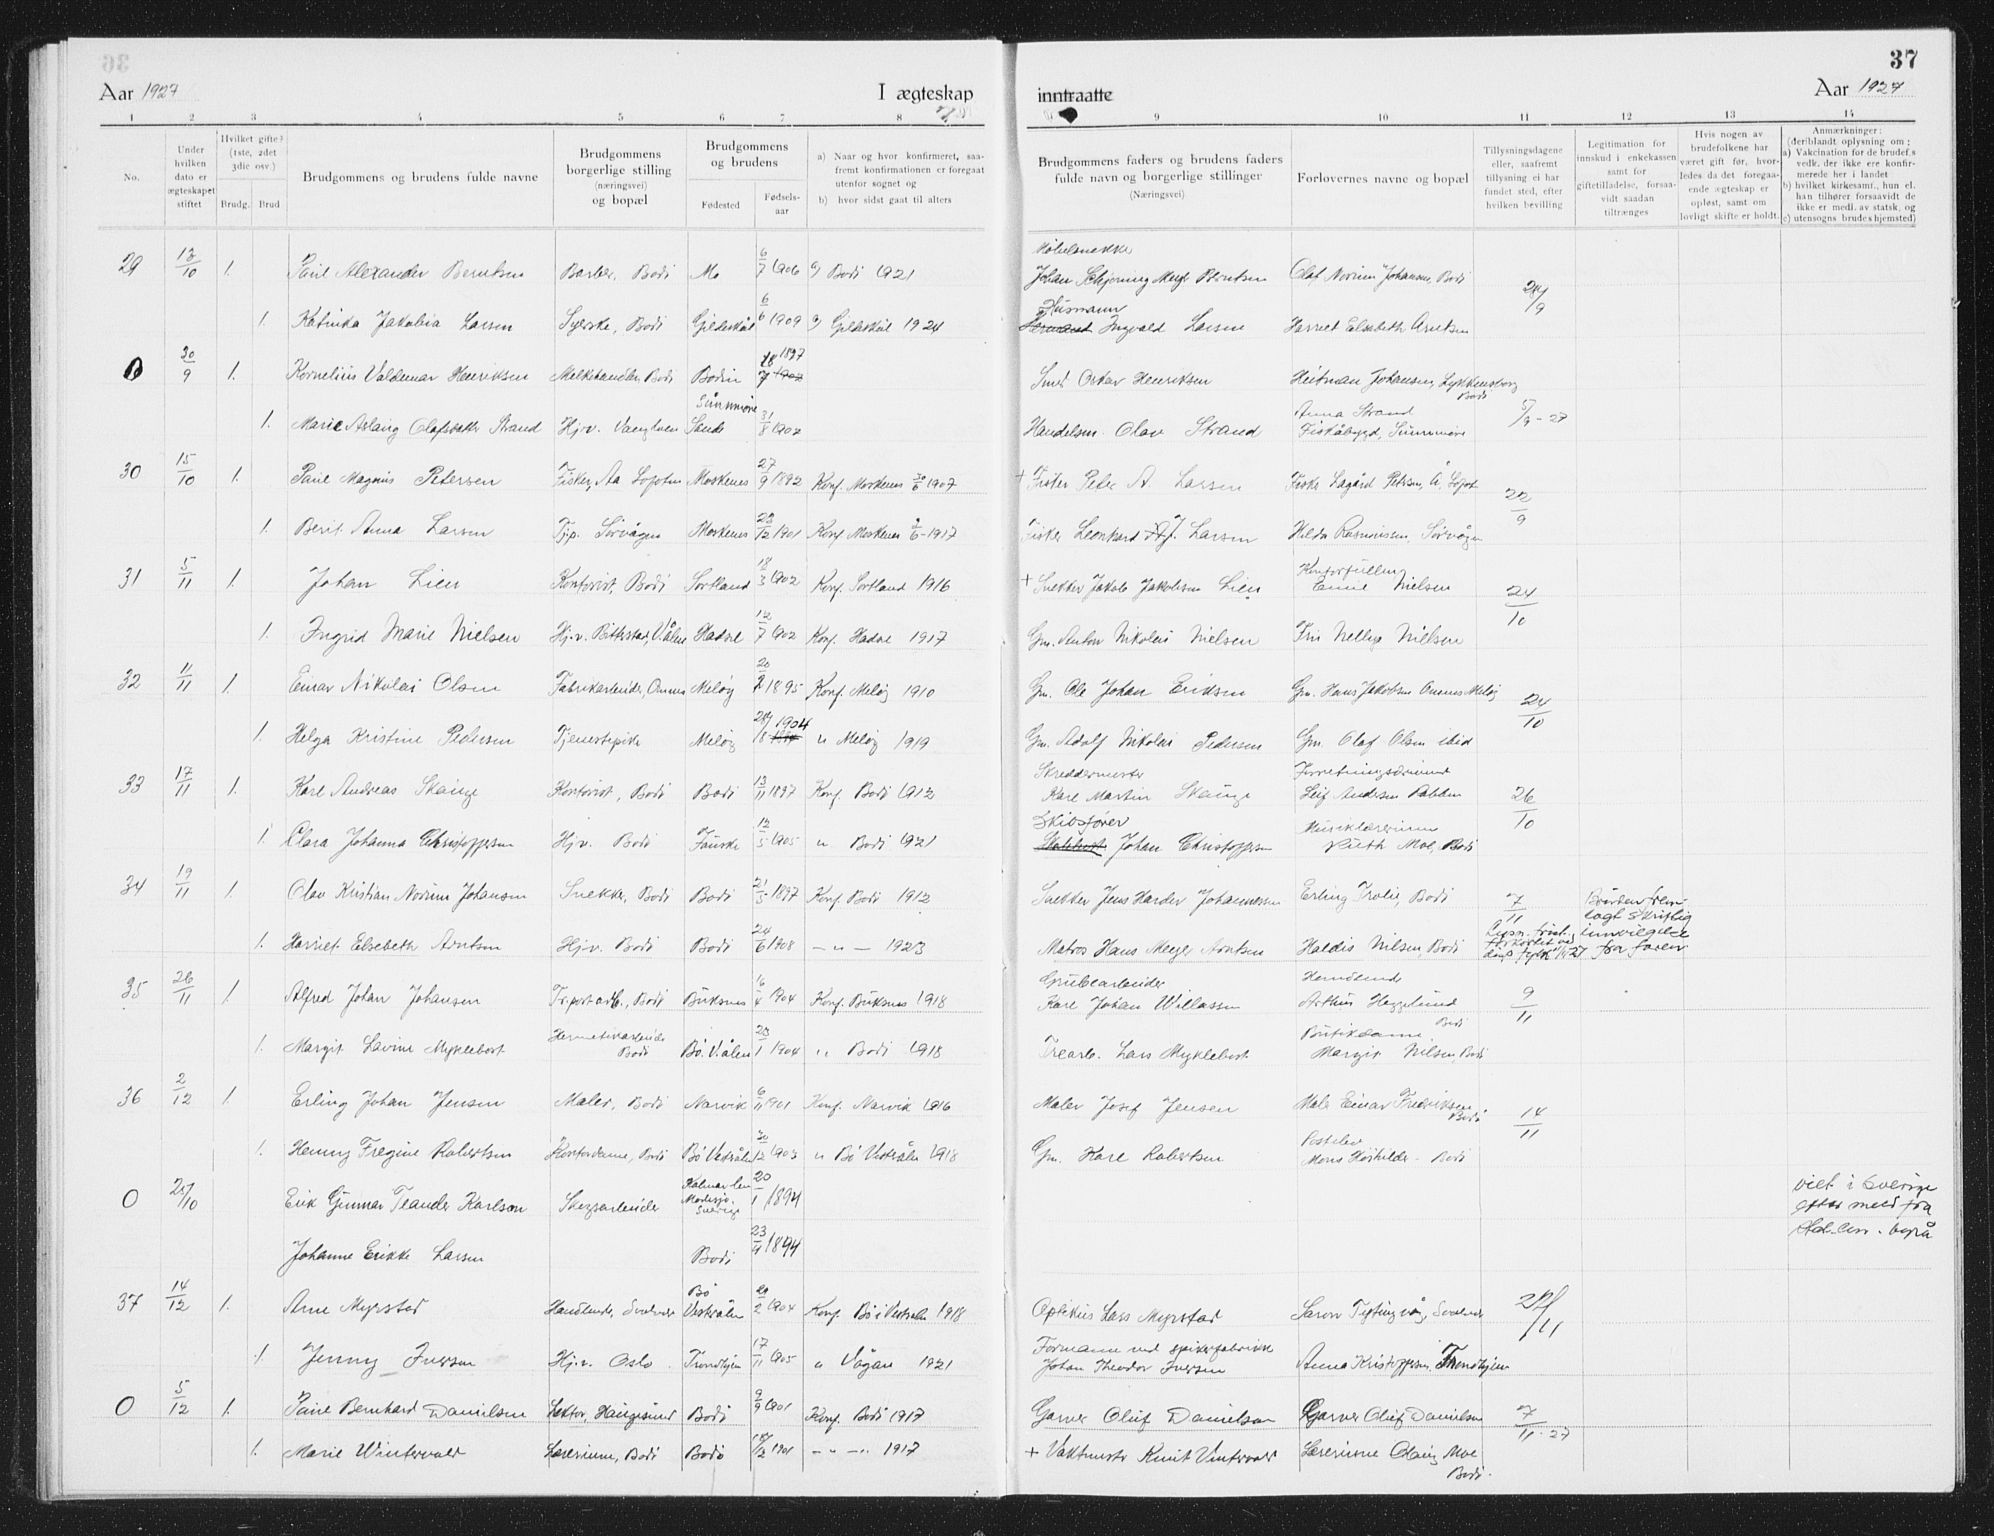 37
Aar 1927
I ægteskap
inntraatte
Aar 1927
1 2 3 4 5 6 7 8 9 10 11 12 13 14
No.
Under hvilken dato er ægteskapet stiftet
Hvilket gifte? (1ste, 2det 3die osv.)
Brudg. Brud
Brudgommens og brudens fulde navne
Brudgommens borgerlige stilling (næringsvei) og bopæl
Brudgommens og brudens
Fødested
Fødsels-aar
a) Naar og hvor konfirmeret, saafremt konfirmationen er foregaat utenfor sognet og
b) hvor sidst gaat til alters
Brudgommens faders og brudens faders fulde navn og borgerlige stillinger (Næringsvei)
Forlovernes navne og bopæl
Tillysningsdagene eller, saafremt tillysning ei har fundet sted, efter hvilken bevilling
Legitimation for innskud i enkekassen samt for giftetilladelse, forsaavidt saadan tiltrænges
Hvis nogen av brudefolkene har været gift før, hvorledes da det foregaaende ægteskap er opløst, samt om lovligt skifte er holdt.
Anmærkninger: (deriblandt oplysning om:
a) Vakcination for de brudef.s vedk. der ikke ere konfirmerede her i landet
b) hvilket kirkesamf., hun el. han tilhører forsaavidt de ikke er medl. av statsk. og
c) utensogns brudes hjemsted)
29 13/10 1. Paul Alexander Berntsen Barber, Bodö Mo 6/7 1906 a) Bodö 1921 Johan Schjøning Meyer Berntsen Olaf Norum Johansen, Bodö
1. Katinka Jakobia Larsen Syerske, Bodö Gildeskål 6/6 1909 a) Gildeskål 1924 Husmann Ingvald Larsen Harriet Elsebeth Arntsen
30/9 1. Kornelius Valdemar Henriksen Melkehandler Bodö Bodin 1897 Smed Oskar Henriksen Heitman Johansen, Lykkensborg Bodö
1. Marie Aslaug Olafsdatter Strand Hj.v. Sunnmøre Sande 31/8 1902 Handelsm. Olav Strand Anna Strand Fiskåbygd, Sunnmøre
30 15/10 1. Paul Magnus Petersen Fisker, Aa Lofoten Moskenes 27/9 1892 Konf. Moskenes 30/6 1907 + Fisker Peter A. Larsen 22/9
1. Berit Anna Larsen Tjp. Sörvågen Moskenes 23/12 1901 Konf. Moskenes 1917 Fisker Leonhard Larsen Hilda Rasmussen, Sörvågen
31 5/11 1. Johan Lien Kontorist, Bodö Sortland 18/3 1902 Konf. Sortland 1916 + Snekker Jakob Jakobsen Lien Nielsen 24/10
1. Ingrid Marie Nielsen Hj.v. Hadsel 12/7 1902 Konf. Hadsel 1917 Gm. Anton Nikolai Nielsen Nielsen
32 11/11 1. Einar Nikolai Olsen Fabrikarbeider, Meløy 1895 Konf. Meløy 1910 Gm. Ole Johan Eriksen Gm. Hans Jakobsen Meløy 24/10
1. Helga Kristine Pedersen Tjenestepike Meløy 1904 " Meløy 1919 Gm. Adolf Nikolai Pedersen Gm. Olaf Olsen ibid
33 17/11 1. Karl Andreas Skauge Kontorist, Bodö Bodö 13/11 1897 Konf. Bodö 1912 Skreddermester Karl Martin Skauge Leif Andersen 26/10
1. Clara Johanna Christoffersen Hj.v. Bodö Fauske 12/5 1905 " Bodö 1921 Skibsfører Johan Christoffersen Musiklærerinne Ruth Moe, Bodö
34 19/11 1. Olav Kristian Norum Johansen Snekker, Bodö Bodö 21/5 1897 Konf. Bodö 1912 Snekker Jens Harder Johannessen Erling Trolie, Bodö 7/11 Bruden fremlagt skriftlig innvilgelse fra foreldr
1. Harriet Elsebeth Arntsen Hj.v. Bodö Bodö 24/6 1908 — " — 1923 Matros Hans Meyer Arntsen Haldis Nilsen, Bodö
35 26/11 1. Alfred Johan Johansen Bodö Buksnes 16/4 1904 Konf. Buksnes 1918 Grubearbeider Karl Johan Willassen Handlende Arthur Hegglund Bodö 9/11
1. Margit Lavine Myklebost Hermetikarbeider Bodö Bö V.ålen 23/1 1904 " Bodö 1918 Trearb. Lars Myklebost Butikdame Margit Nilsen, Bodö
36 2/12 1. Erling Johan Jensen Maler, Bodö Narvik 6/11 1901 Konf. Narvik 1916 Maler Josef Jensen Maler Einar Fredriksen Bodö 14/11
1. Henny Fregine Robertsen Kontordame, Bodö Bö Vestrålen 30/12 1903 " Bö Vestrålen 1918 Gm. Karl Robertsen Postelev Bodö
0 Erik Gunnar Teander Karlson Skogsarbeider Kalmar len Sverige 20/1 1894 viet i Sverige efter meld fra
Johanne Erikke Larsen Bodö 23/4 1894
37 14/12 1. Arne Myrstad Handlende, Svolvær Bö Vestrålen 29/2 1904 Konf. Bö i Vestrålen 1918 Optikus Lars Myrstad Svolvær
1. Jenny Iversen Hj.v. Oslo Trondhjem 17/11 1905 " Vågan 1921 Formann ved spikerfabrikk Johan Theodor Iversen Anna Kristoffersen Trondhjem
0 5/12 1. Paul Bernhard Danielsen Lektor, Haugesund Bodö 9/9 1901 Konf. Bodö 1917 Garver Oluf Danielsen Garver Oluf Danielsen 7/11-27
1. Marie Wintervold Lærerinne, Bodö Bodö 1901 — " — 1917 + Vaktmester Knut Vintervold Lærerinne Moe Bodö.